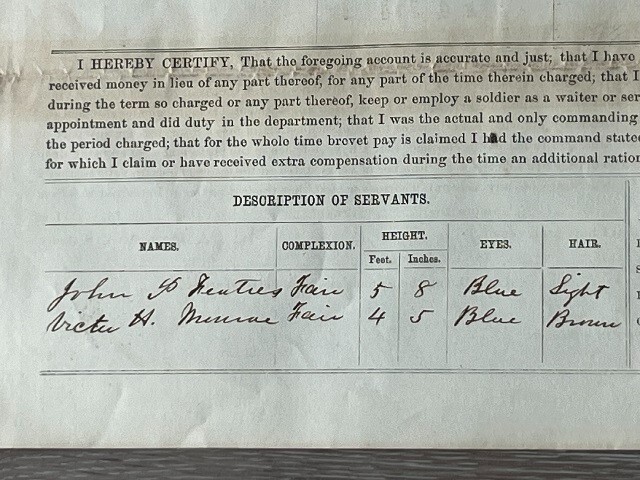 I HEREBY CERTIFY, That the foregoing account is accurate and just; that I have
received money in lieu of any part thereof, for any part of the time therein charged; that I
during the term so charged or any part thereof, keep or employ a soldier as a waiter or ser
appointment and did duty in the department; that I was the actual and only commanding
the period charged; that for the whole time brevet pay is claimed I had the command state
for which I claim or have received extra compensation during the time an additional ration
DESCRIPTION OF SERVANTS.
NAMES. COMPLEXION. HEIGHT. EYES. HAIR.
Feet. Inches.
John Fair 5 8 Blue Light
Victor H. Munroe Fair 4 5 Blue Brown